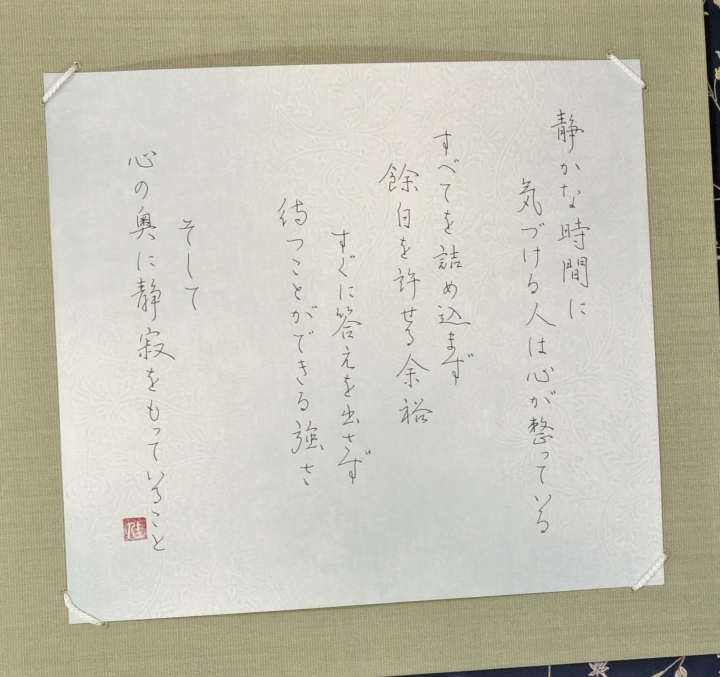 静かな時間に
気づける人は心が整っている
すべてを詰め込まず
餘白を許せる余裕
すぐに答えを出さず
待つことができる強さ
そして
心の奥に静寂をもっていること
佳